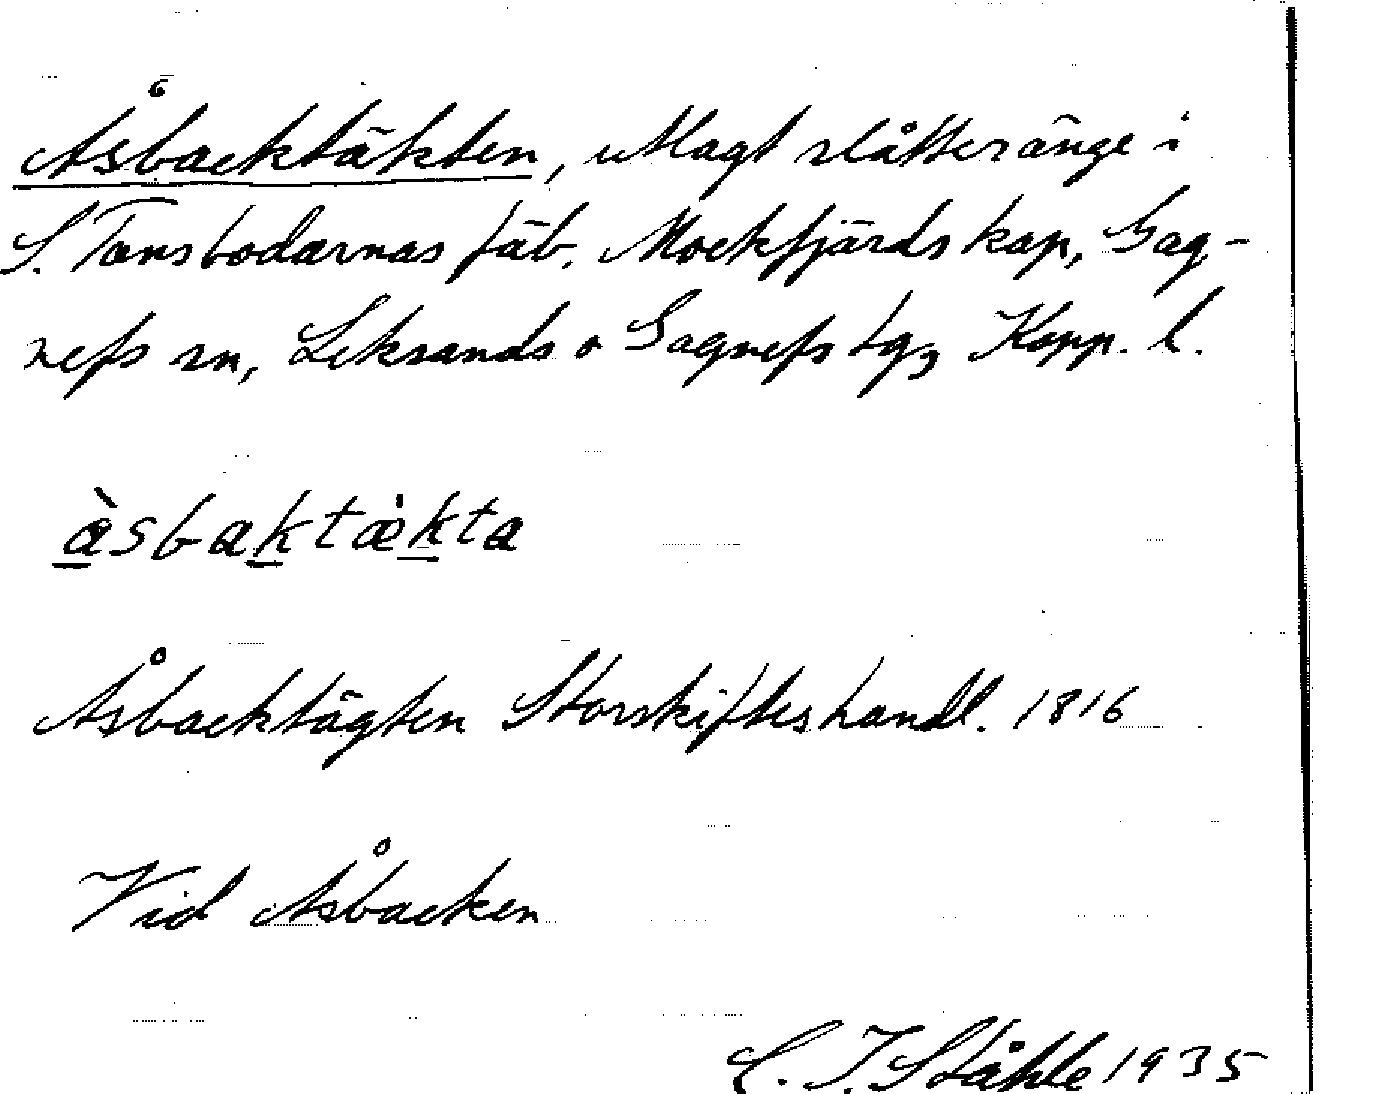 Åsbacktäkten, utlagt slåtteränge i
S. Tansbodarnas fäb. Mockfjärds kap, Gag-
nefs sn, Leksands o Gagnefs tg, Kopp. l.
àsbaktæ̀kta
Åsbacktägten Storskifteshandl. 1816
Vid Åsbacken
C. I. Ståhle 1935